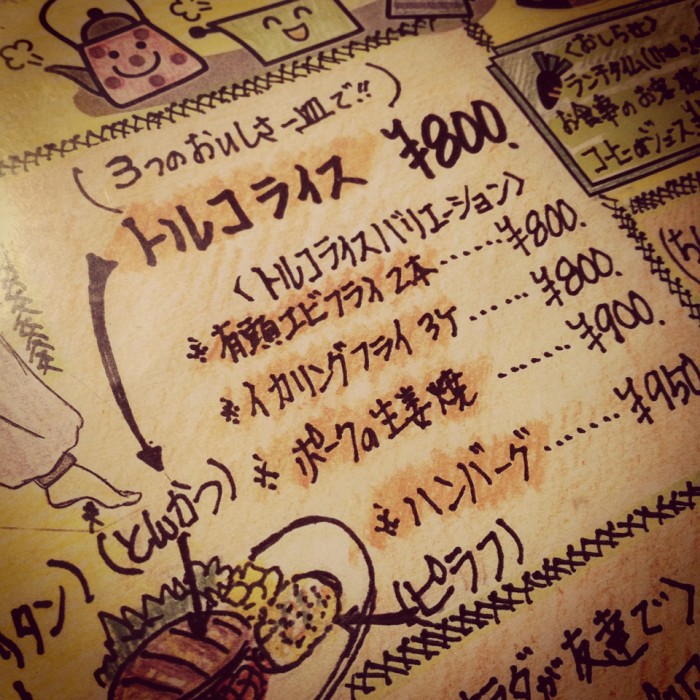 (3つのおいしさ一皿で!!)
トルコライス ¥800.
<トルコライスバリエーション>
※有頭エビフライ 2本 ...... ¥800.
※イカリングフライ 3ケ ...... ¥800.
※ポークの生姜焼 ...... ¥900.
※ハンバーグ ...... ¥950
(とんかつ)
(ピラフ)
リタン)
が友達で)
<おしらせ>
ランチタイム
お食事のお客